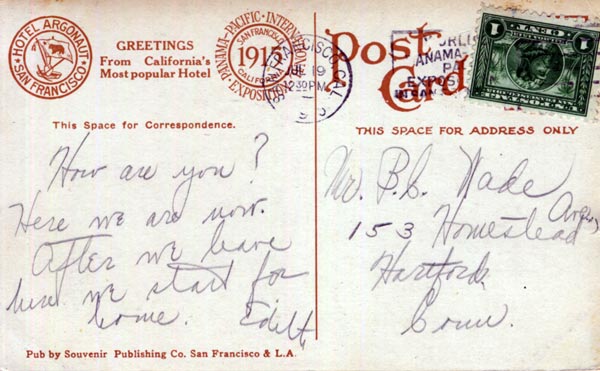 HOTEL ARGONAUT
SAN FRANCISCO.
GREETINGS
From California's
Most popular Hotel
PANAMA-PACIFIC-INTERNATIONAL
EXPOSITION
SAN FRANCISCO
1915
CALIFORNIA
FRANCISCO, CAL.
19
230PM
Post
Card
PANAMA-
EXPOS
1 CENT 1
This Space for Correspondence.
THIS SPACE FOR ADDRESS ONLY
How are you?
Here we are now.
After we leave
here we start for
home. Edith
Mr. P.C. Wade
153 Homestead
Hartford
Conn.
Pub by Souvenir Publishing Co. San Francisco & L.A.